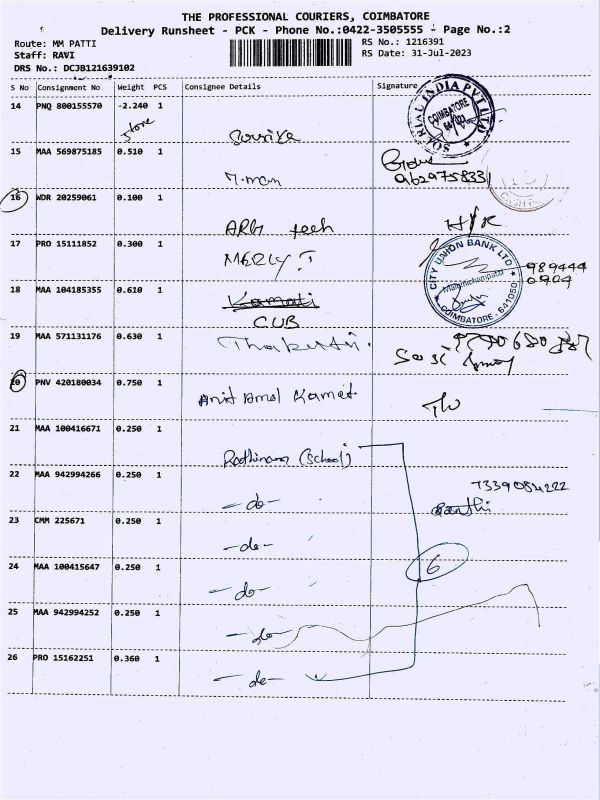 THE PROFESSIONAL COURIERS, COIMBATORE
Delivery Runsheet - PCK - Phone No.:0422-3505555 - Page No.:2
Route: MM PATTI
RS No.: 1216391
Staff: RAVI
RS Date: 31-Jul-2023
DRS No.: DCJB121639102
S No Consignment No Weight PCS Consignee Details Signature
14 PNQ 800155570 -2.240 1
SOLRIAL INDIA PVT LTD
COIMBATORE
15 MAA 569875185 0.510 1
9629758331
16 WDR 20259061 0.100 1
ARBI tech
17 PRO 15111852 0.300 1
MERLY
CITY UNION BANK LTD
COIMBATORE - 641050
989444
0904
18 MAA 104185355 0.610 1
Kamati
CUB
19 MAA 571131176 0.630 1
Sasi
20 PNV 420180034 0.750 1
Anit Amal Kamat
21 MAA 100416671 0.250 1
Rathinam (School)
22 MAA 942994266 0.250 1
- do -
7339084222
23 CMM 225671 0.250 1
- do -
6
24 MAA 100415647 0.250 1
- do -
25 MAA 942994252 0.250 1
- do -
26 PRO 15162251 0.360 1
- do -